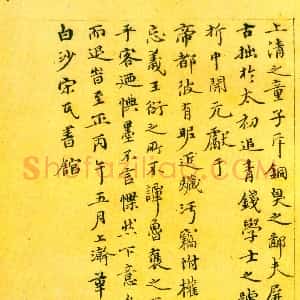 上清之童子斥銅臭之鄙夫屏
古拙於太初追青錢學士之號
折中開元獻于
帝都彼有耶近贓污竊附權
忘義王衍之所不譚魯褒之
乎客迺懊墨不言慄然下意
而退昔至正丙午五月上澣華
白沙宗氏書館
Shefazilian.COM